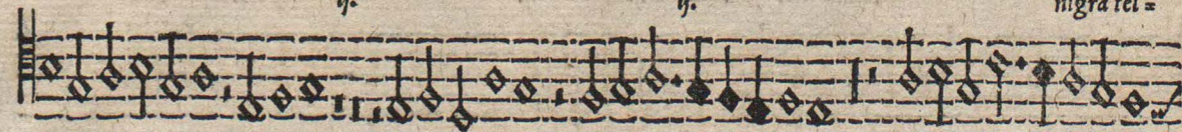 ij. ij. nigra tel =